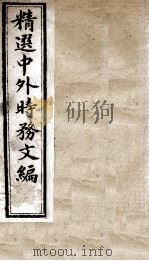 精選中外時務文編
mtoou.info